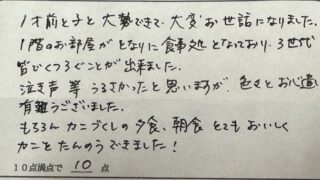 1才前と子と大勢できて、大変お世話になりました。
1階のお部屋がとなりに食事処となっており、3世代
皆でくつろぐことが出来ました。
泣き声等うるさかったと思いますが、色々とお心遣
有難うございました。
もちろんカニづくしの夕食、朝食とてもおいしく
カニをたんのうできました!
10点満点で 10 点